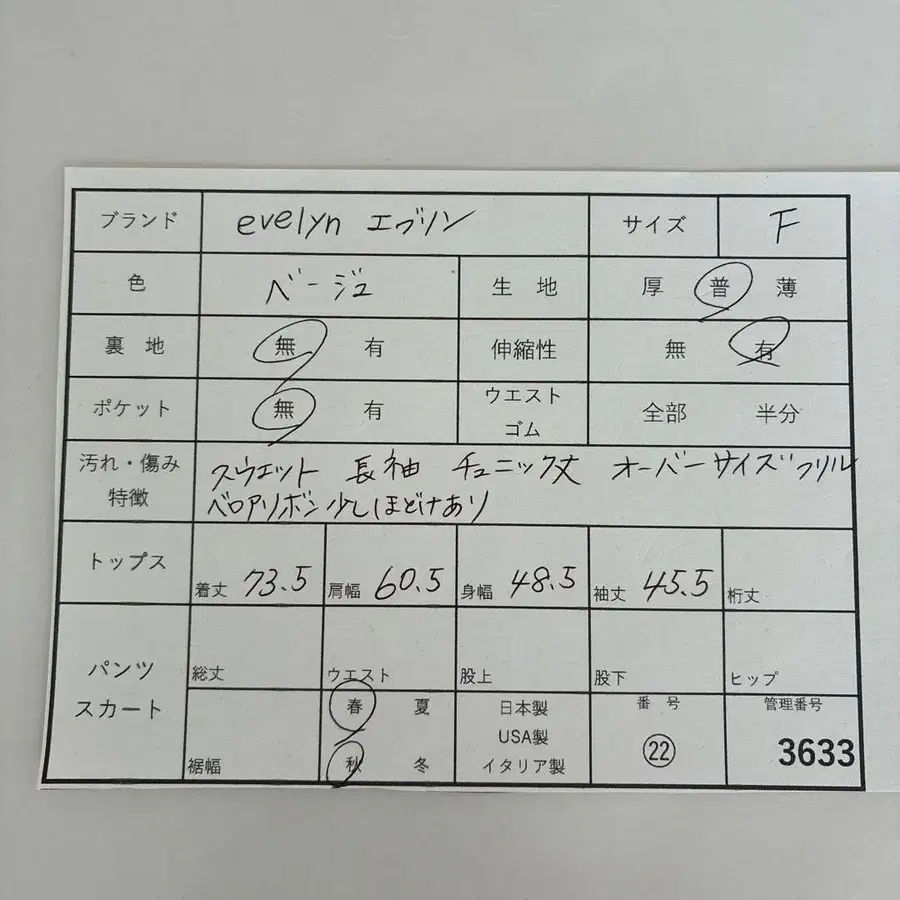 ブランド evelyn エブリン サイズ F
色 ベージュ 生地 厚 普 薄
裏地 無 有 伸縮性 無 有
ポケット 無 有 ウエスト 全部 半分
ゴム
汚れ・傷み スウェット 長袖 チュニック丈 オーバーサイズ フリル
特徴 ベロアリボン少しほどけあり
トップス 着丈 73.5 肩幅 60.5 身幅 48.5 袖丈 45.5 裄丈
パンツ 総丈 ウエスト 股上 股下 ヒップ
スカート 裾幅 春 夏 日本製 番号 管理番号
USA製 22 3633
秋 冬 イタリア製